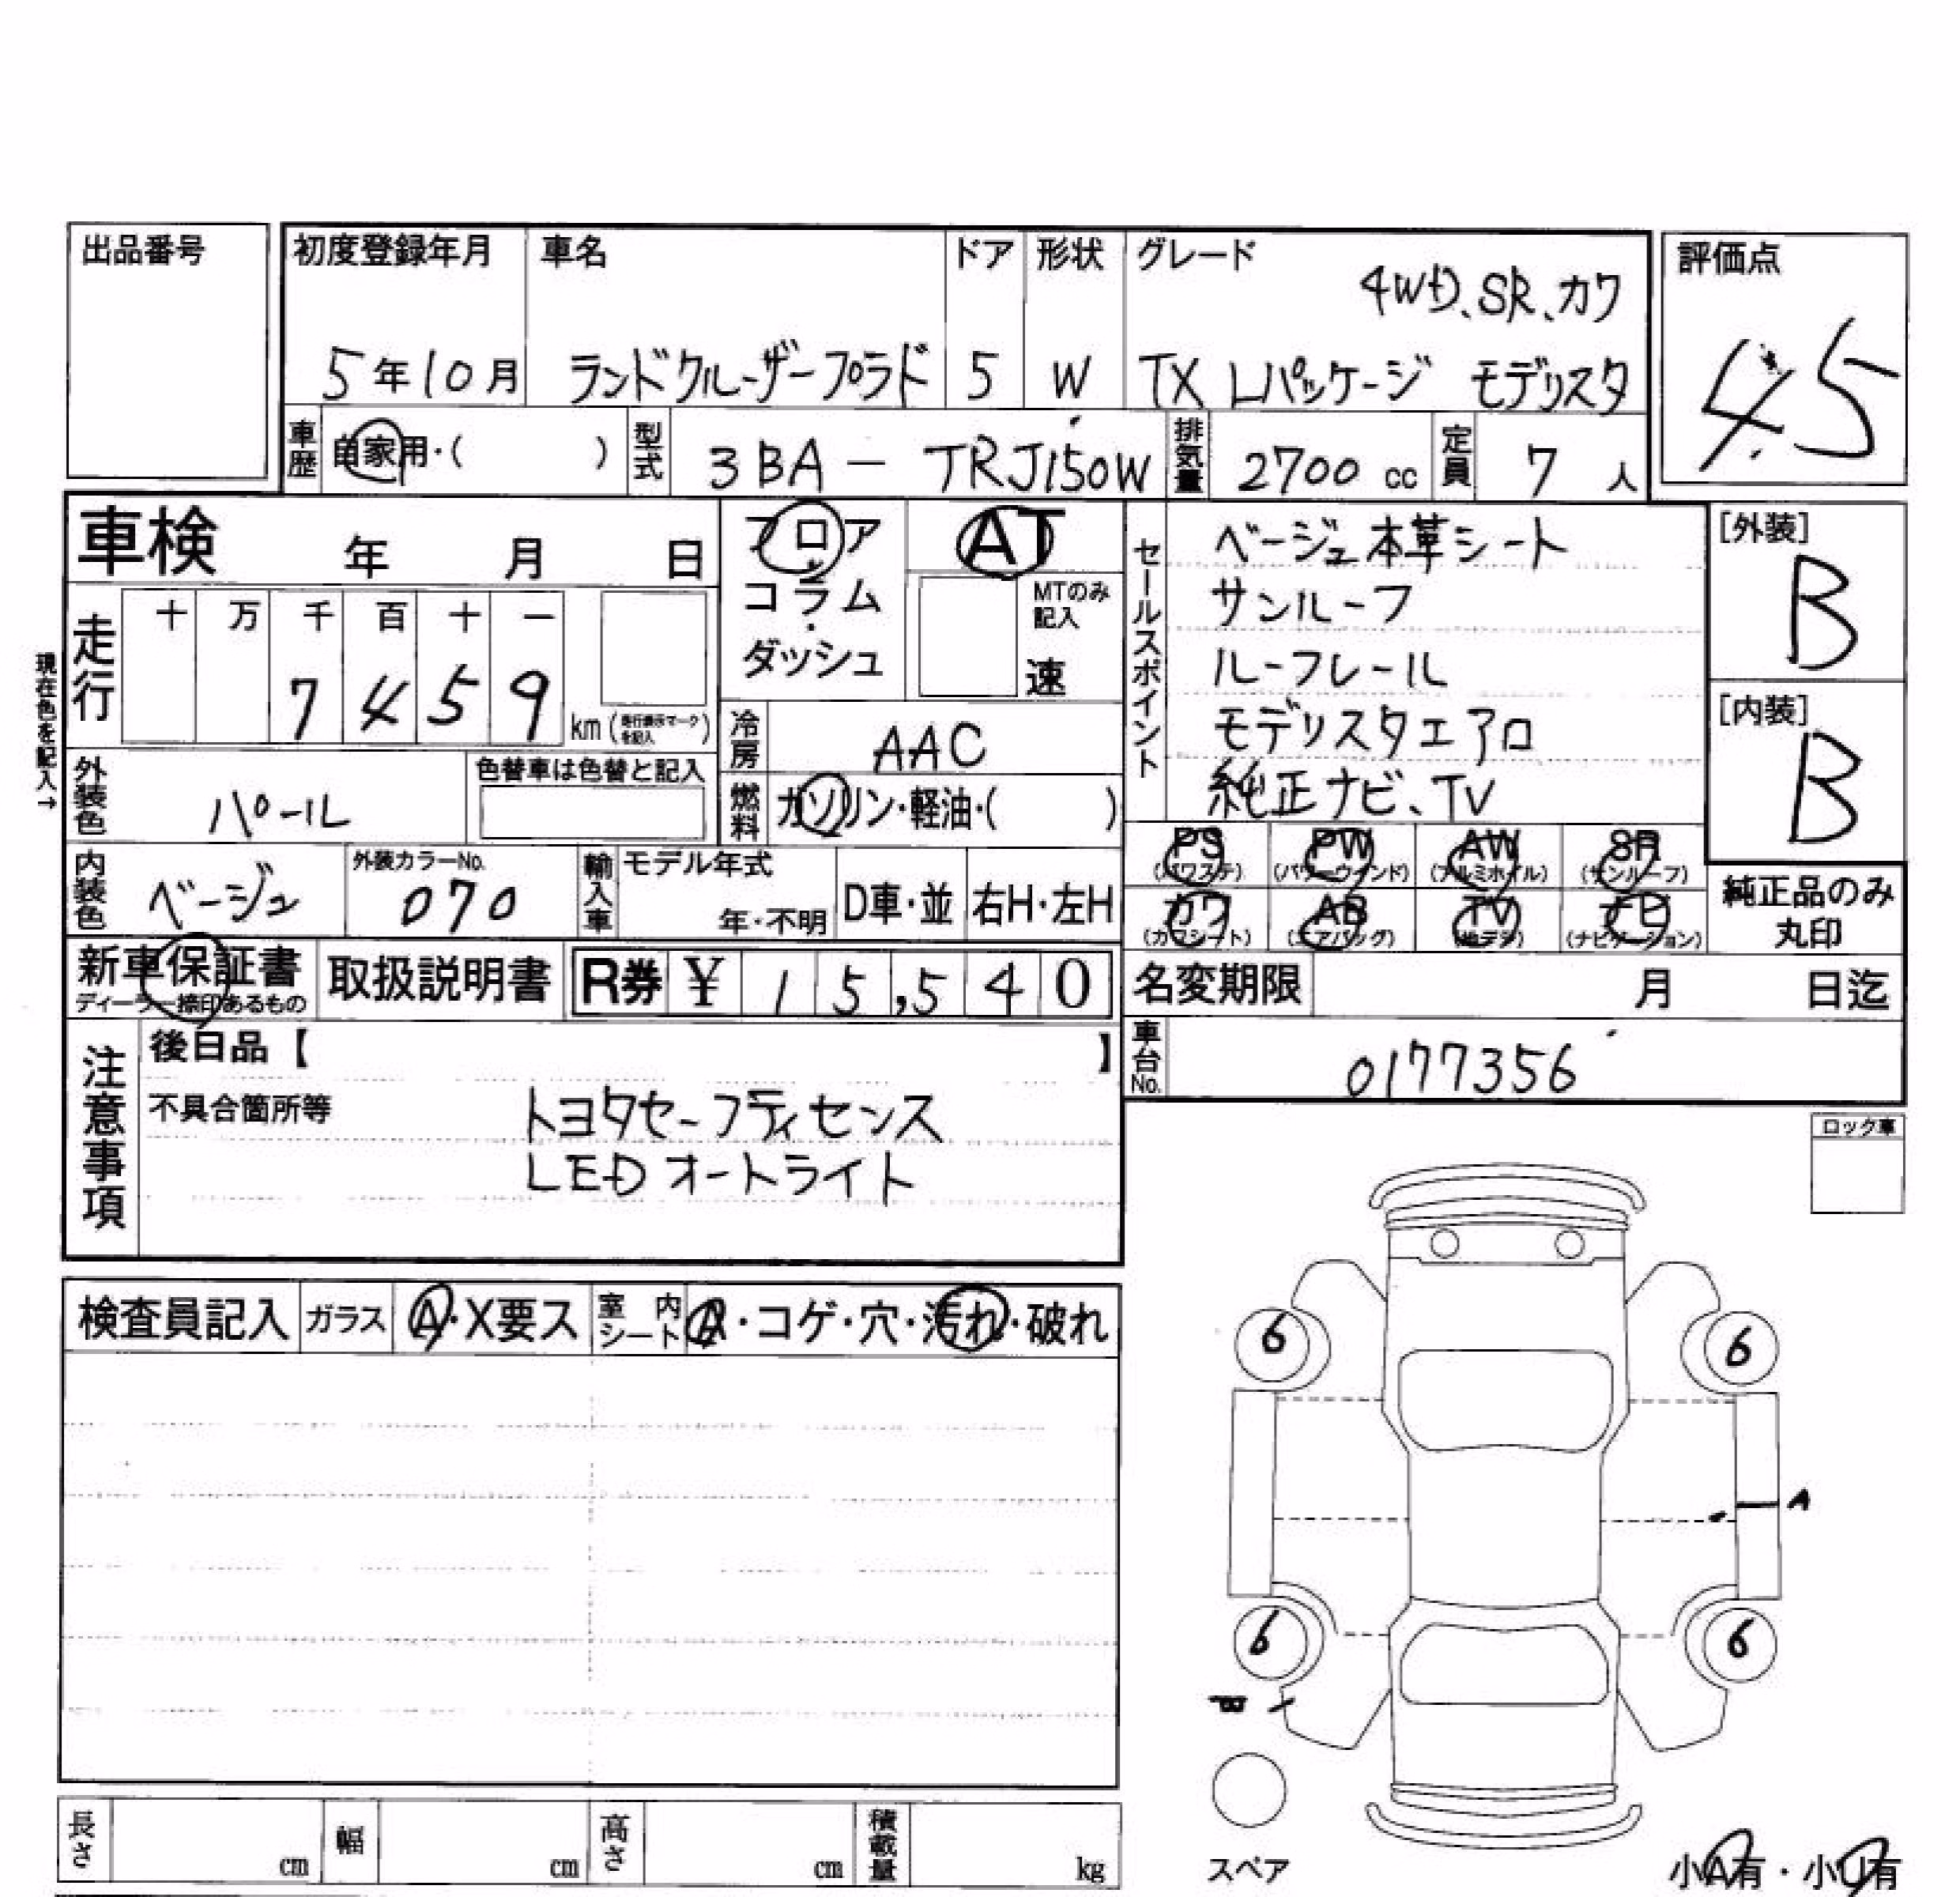 出品番号
初度登録年月 車名 ドア 形状 グレード 評価点
4WD、SR、カワ
5年10月 ランドクルーザープラド 5 W TX Lパッケージ モデリスタ 4.5
車歴 自家用・( ) 型式 3BA - TRJ150W 排気量 2700 cc 定員 7 人
車検 年 月 日
フロア
コラム
・
ダッシュ
AT
MTのみ
記入
速
現在色を記入→
走行 十 万 千 百 十 一
7 4 5 9 km
冷房 AAC
外装色 パール 色替車は色替と記入
燃料 ガソリン・軽油・( )
セールスポイント
ベージュ本革シート
サンルーフ
ルーフレール
モデリスタエアロ
純正ナビ、TV
[外装]
B
[内装]
B
PS PW AW SR
(パワステ) (パワーウインド) (アルミホイル) (サンルーフ)
カワ AB TV ナビ
(カワシート) (エアバッグ) (地デジ) (ナビゲーション)
純正品のみ
丸印
内装色 ベージュ 外装カラーNo. 070 輸入車 モデル年式 年・不明 D車・並 右H・左H
新車保証書 取扱説明書 R券 ¥ 15,540 名変期限 月 日迄
ディーラー捺印あるもの
車台No. 0177356
注意事項
後日品【 】
不具合箇所等 トヨタセーフティセンス
LEDオートライト
ロック車
検査員記入 ガラス A・X要ス 室内シート A・コゲ・穴・汚れ・破れ
6 6
A
6 6
スペア
長さ cm 幅 cm 高さ cm 積載量 kg
小A有・小U有